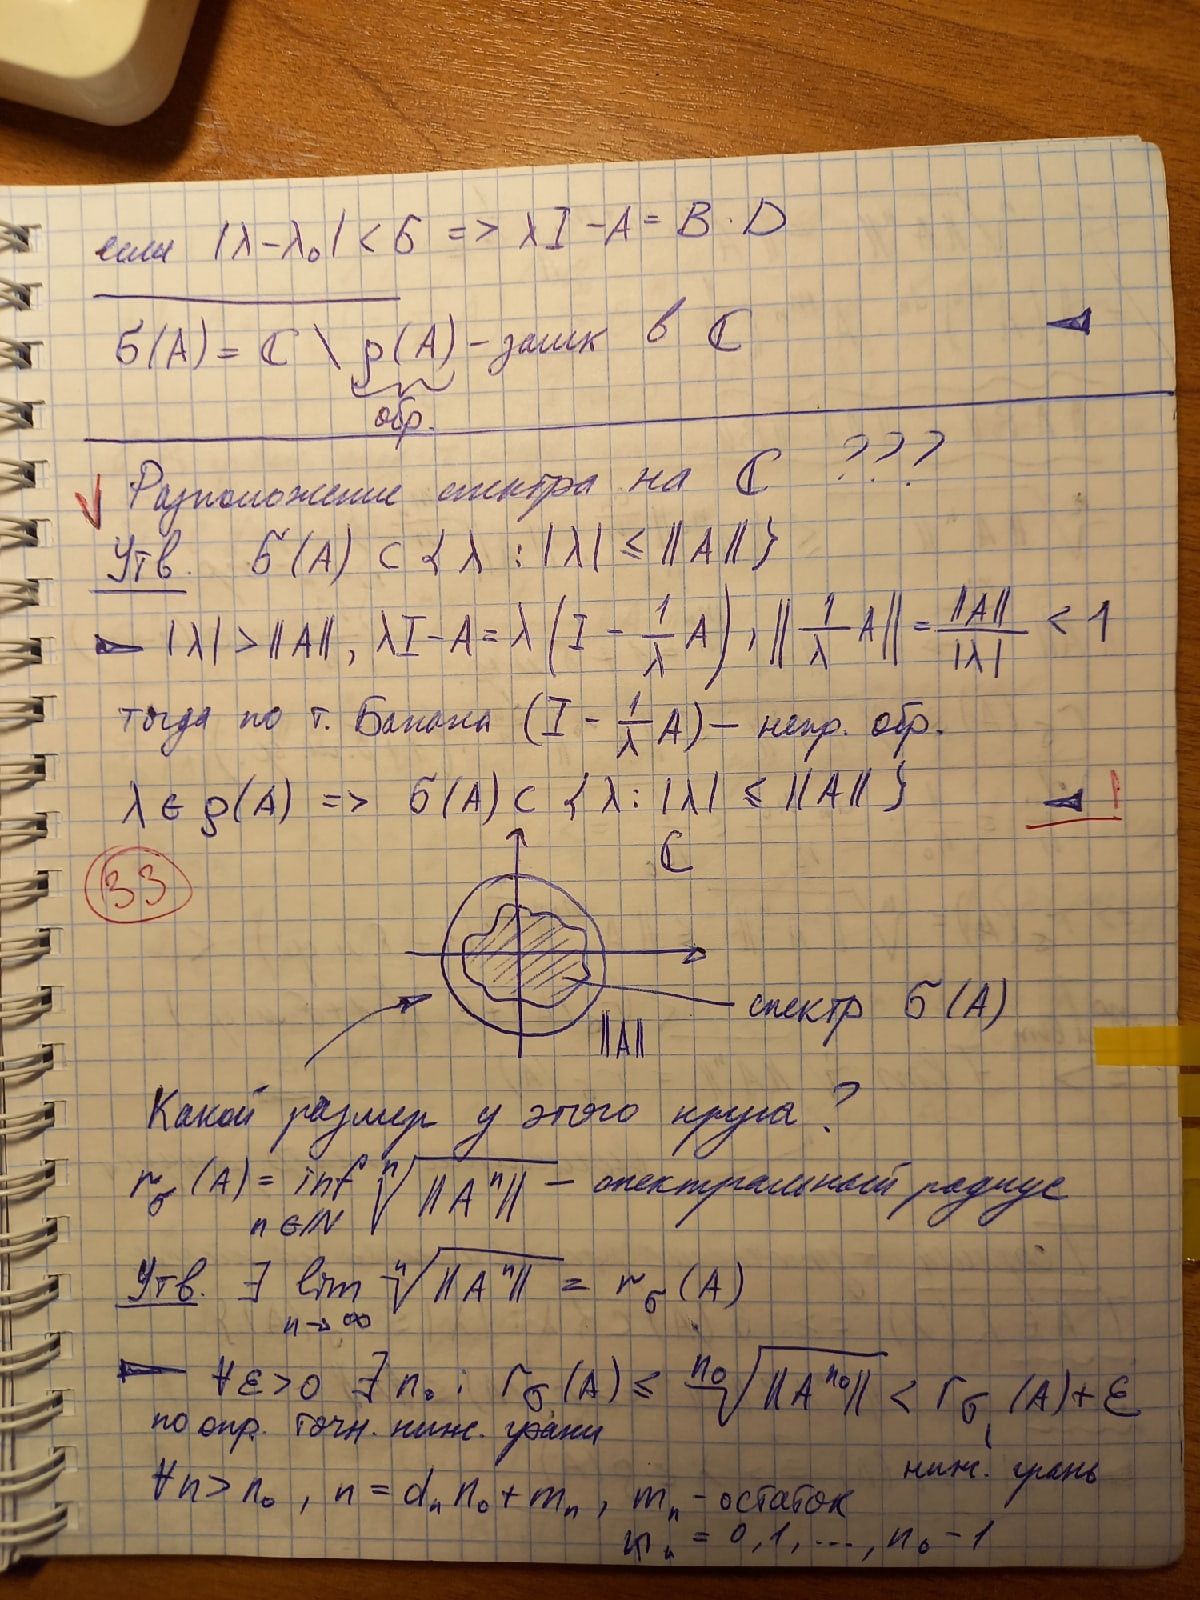 если |λ-λ₀| < σ => λI - A = B · D
σ(A) = ℂ \ ρ(A) - замк в ℂ
обр.
Разположение спектра на ℂ ???
Утв. σ(A) ⊂ {λ : |λ| ≤ ||A||}
|λ| > ||A||, λI - A = λ(I - 1/λ A), ||1/λ A|| = ||A||/|λ| < 1
тогда по т. Банаха (I - 1/λ A) - непр. обр.
λ ∈ ρ(A) => σ(A) ⊂ {λ : |λ| ≤ ||A||}
ℂ
33
спектр σ(A)
||A||
Какой размер у этого круга?
r_σ(A) = inf_{n∈ℕ} ⁿ√||Aⁿ|| - спектральный радиус
Утв. ∃ lim_{n→∞} ⁿ√||Aⁿ|| = r_σ(A)
∀ε>0 ∃ n₀ : r_σ(A) ≤ ⁿ⁰√||Aⁿ⁰|| < r_σ(A) + ε
по опр. точн. ниж. грани
ниж. грань
∀n > n₀, n = dₙ n₀ + mₙ, mₙ - остаток
mₙ = 0, 1, ..., n₀ - 1